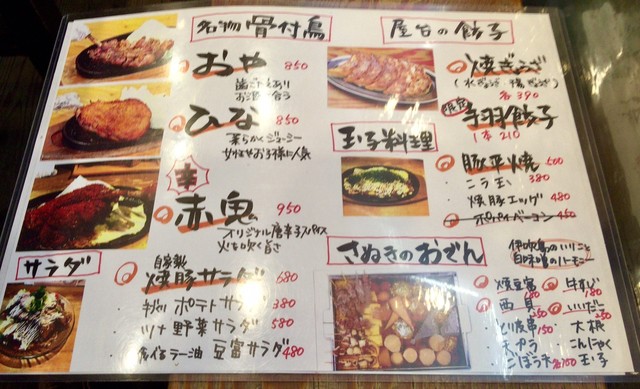 名物骨付鳥
おや 850
歯ごたえあり
お酒に合う
ひな 850
柔らかくジューシー
女性やお子様に人気
辛
赤鬼 950
オリジナル唐辛子スパイス
火を吹く旨さ
サラダ
自家製
焼豚サラダ 680
ポテトサラダ 380
ツナ野菜サラダ 580
食べるラー油 豆富サラダ 480
屋台の餃子
焼ぎょうざ
(水ぎょうざ・揚ぎょうざ)
各390
限定
手羽餃子
1本210
玉子料理
豚平焼 500
ニラ玉 380
焼豚エッグ 480
ポパイベーコン 450
さぬきのおでん
伊吹島のいりこと
白味噌のハーモニー
焼豆富
牛すじ 180
西貝
いいだこ 250
とり皮串 150
大根
天ぷら
こんにゃく
ごぼう天
玉子
各100